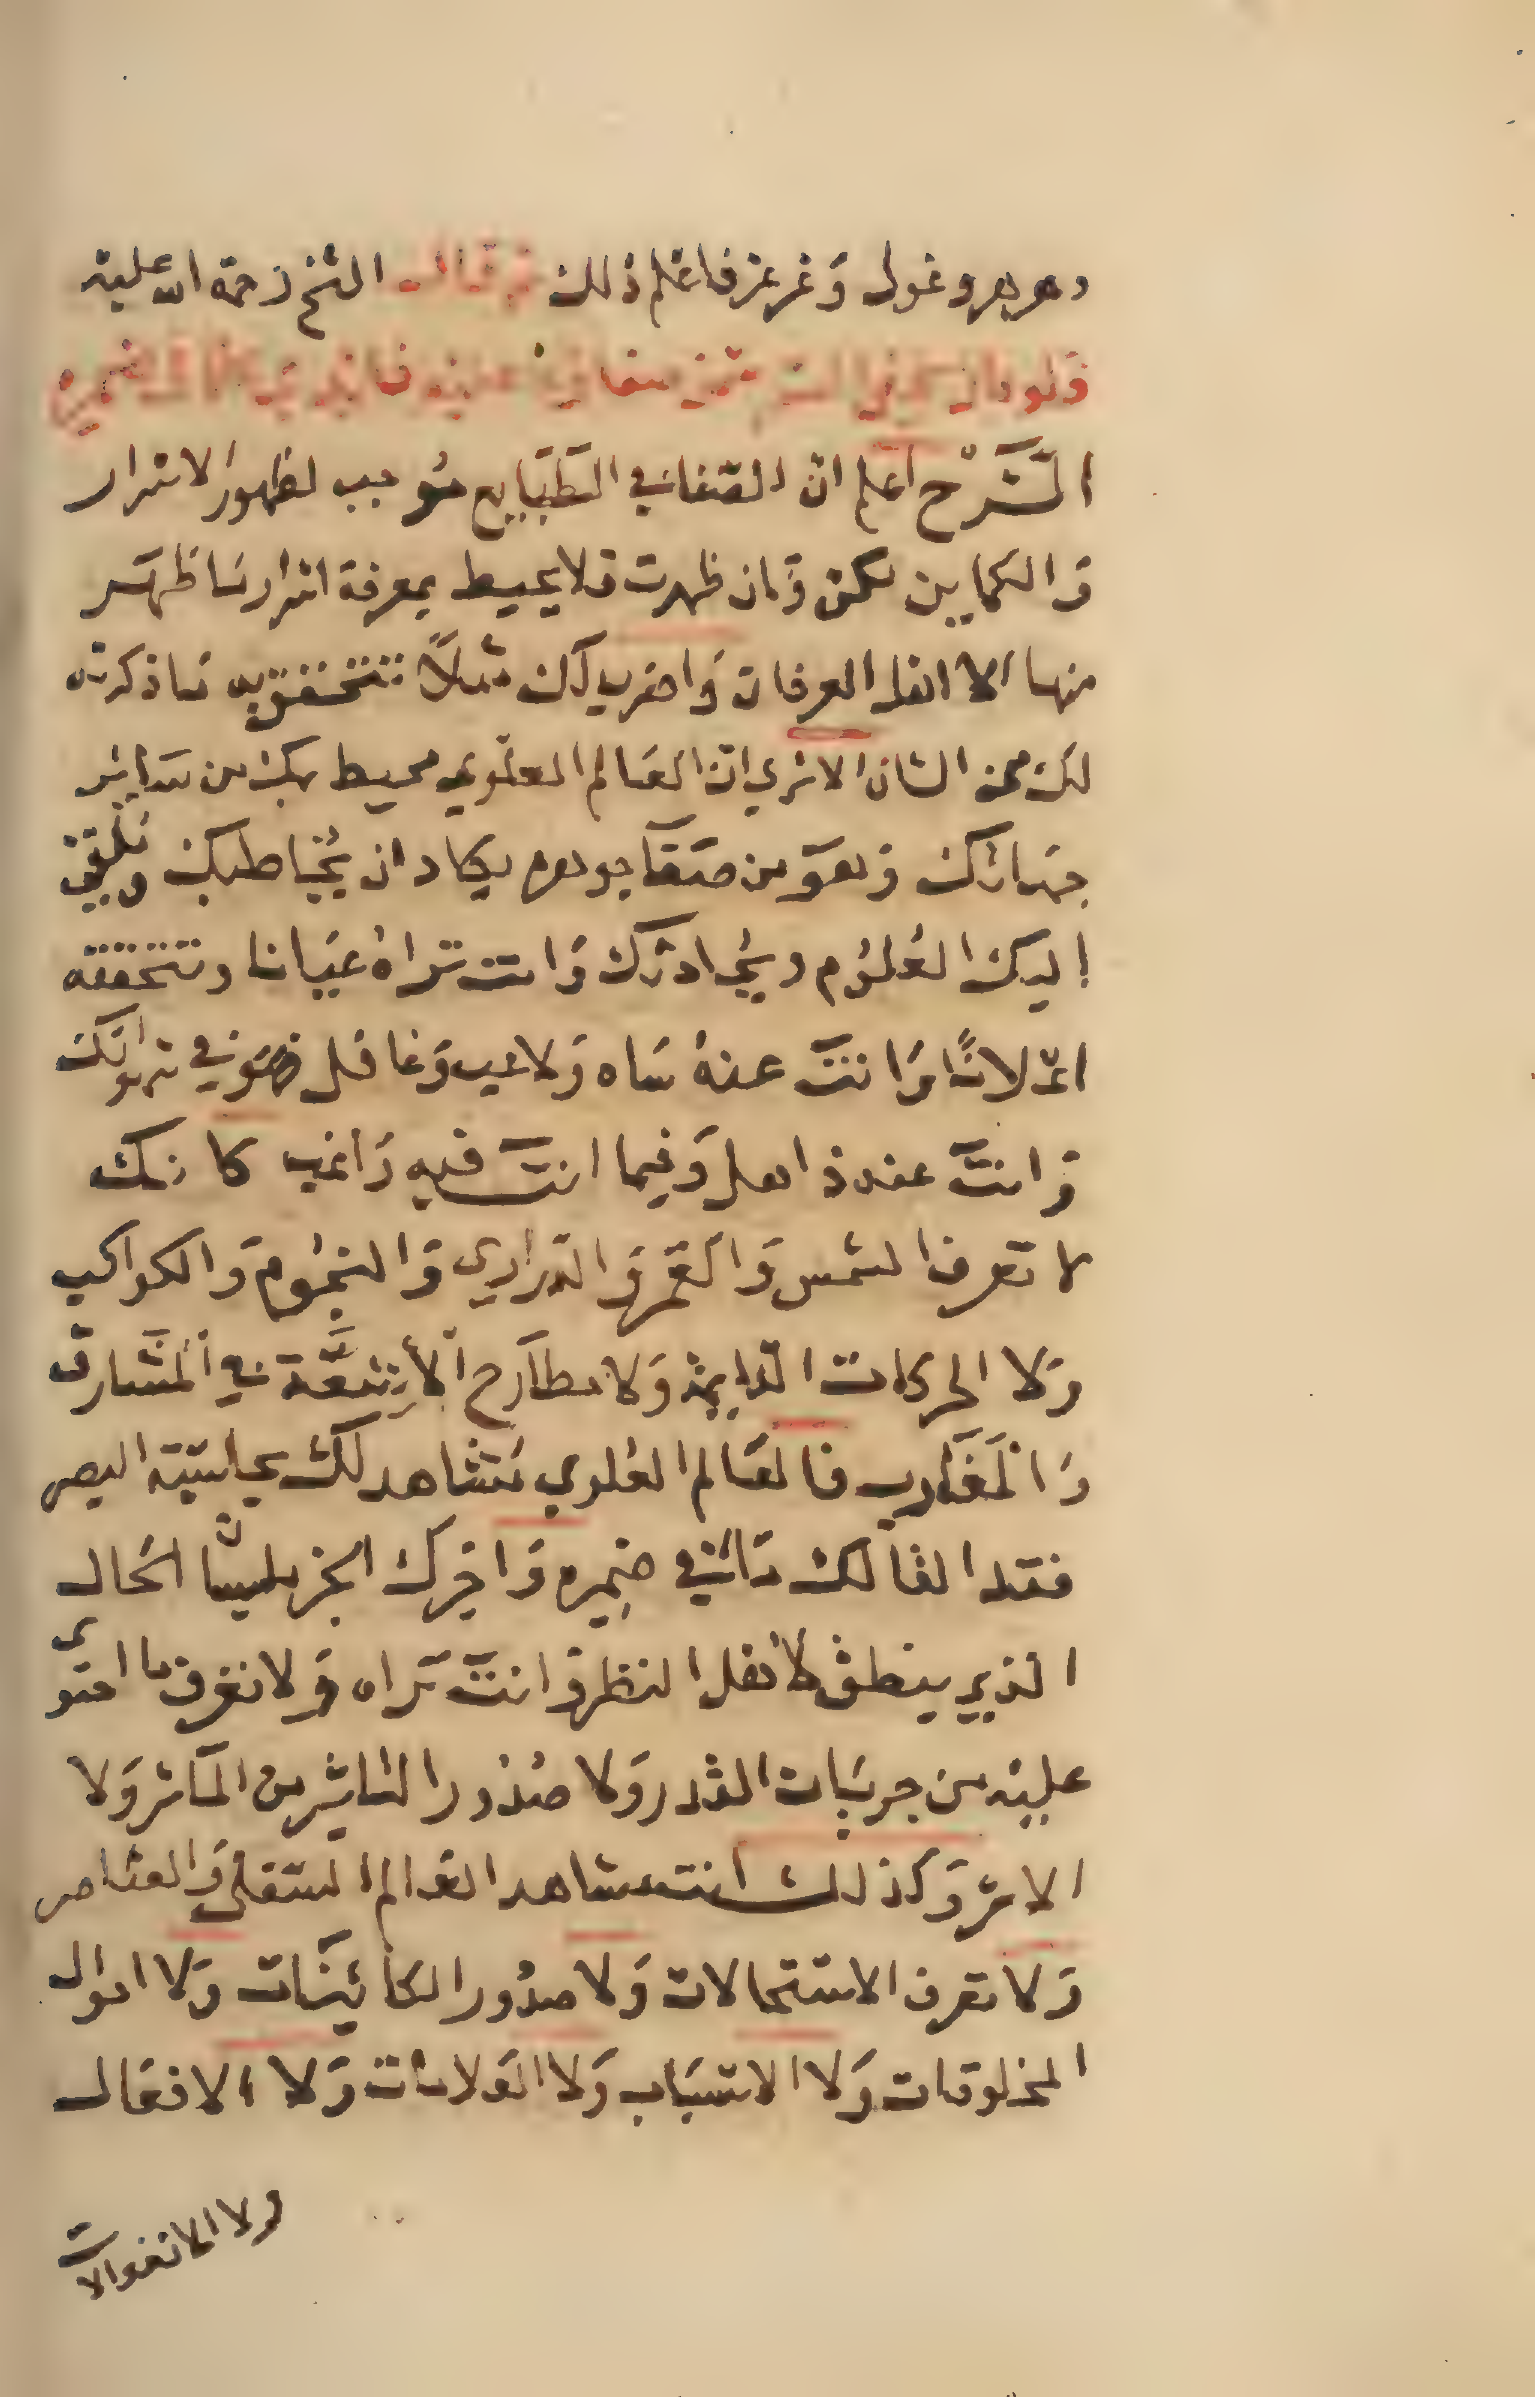 وغول وغرغر فاعلم ذلك ثم قال الشيخ رحمة الله عليه
ولو
الشرح اعلم ان الصفا في الطبايع موجب لظهور الاسرار
والكماين لكن وان ظهرت فلا يحيط بمعرفة اسرار ما ظهر
منها الا اهل العرفان واضرب لك مثلا تتحقق به ما ذكرته
لك من الشان الا ترى ان العالم العلوي محيط بك من ساير
جهاتك وهو من صفا جوهره يكاد ان يخاطبك ويلقي
اليك العلوم ويحادثك وانت تراه عيانا وتتحققه
اعلانا وانت عنه ساه ولاعب وغافل فهو في
وانت عنه ذاهل وفيما انت فيه راغب كانك
لا تعرف الشمس والقمر والدراري والنجوم والكواكب
ولا الحركات الدايمة ولا مطارح الأشعة في المشارق
والمغارب فالعالم العلوي مشاهد لك بحاسة البصر
فقد القا لك ما في ضميره واخبرك الخبر بلسان الحال
الذي ينطق لاهل النظر وانت تراه ولا تعرف ما احتوى
عليه من جريات القدر ولا صدور التاثير من الماثر ولا
الاثر وكذلك انت مشاهد العالم السفلي والعناصر
ولا تعرف الاستحالات ولا صدور الكائنات ولا احوال
المخلوقات ولا الاسباب ولا العلامات ولا الافعال
ولا الانفعالات